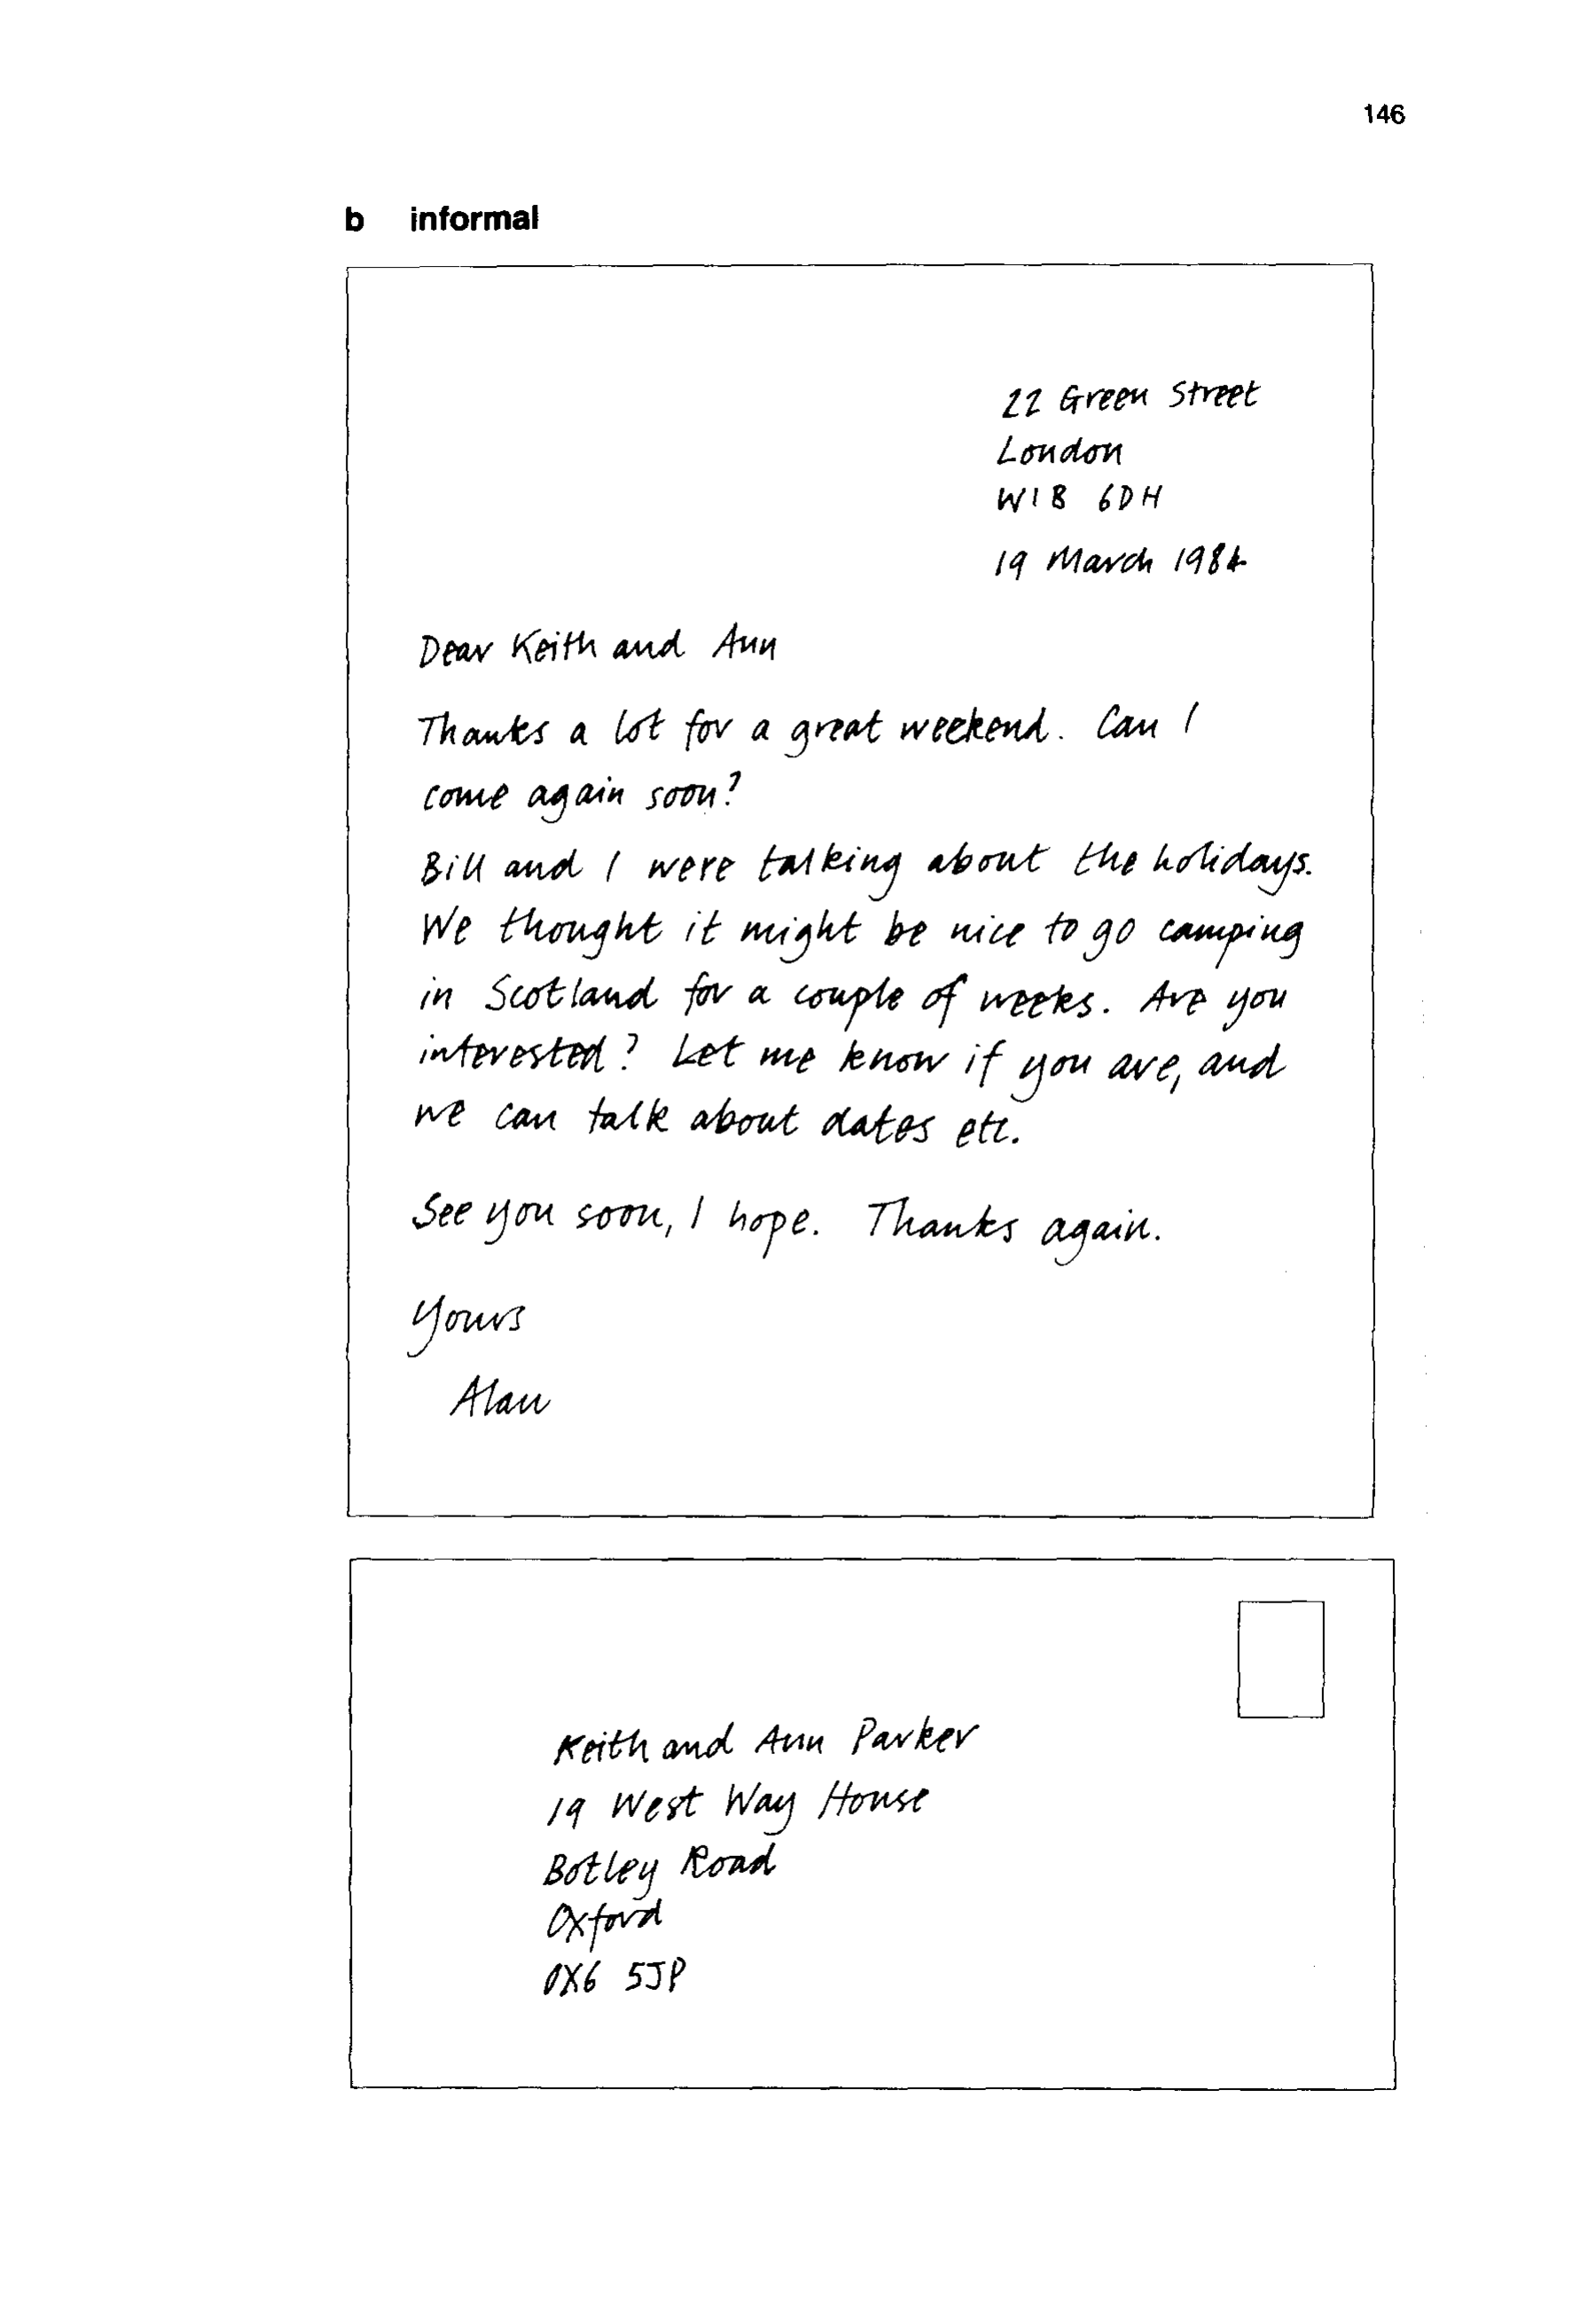 146
b informal
22 Green Street
London
W1B 6DH
19 March 1984
Dear Keith and Ann
Thanks a lot for a great weekend. Can I
come again soon?
Bill and I were talking about the holidays.
We thought it might be nice to go camping
in Scotland for a couple of weeks. Are you
interested? Let me know if you are, and
we can talk about dates etc.
See you soon, I hope. Thanks again.
Yours
Alan
Keith and Ann Parker
19 West Way House
Botley Road
Oxford
OX6 5JP